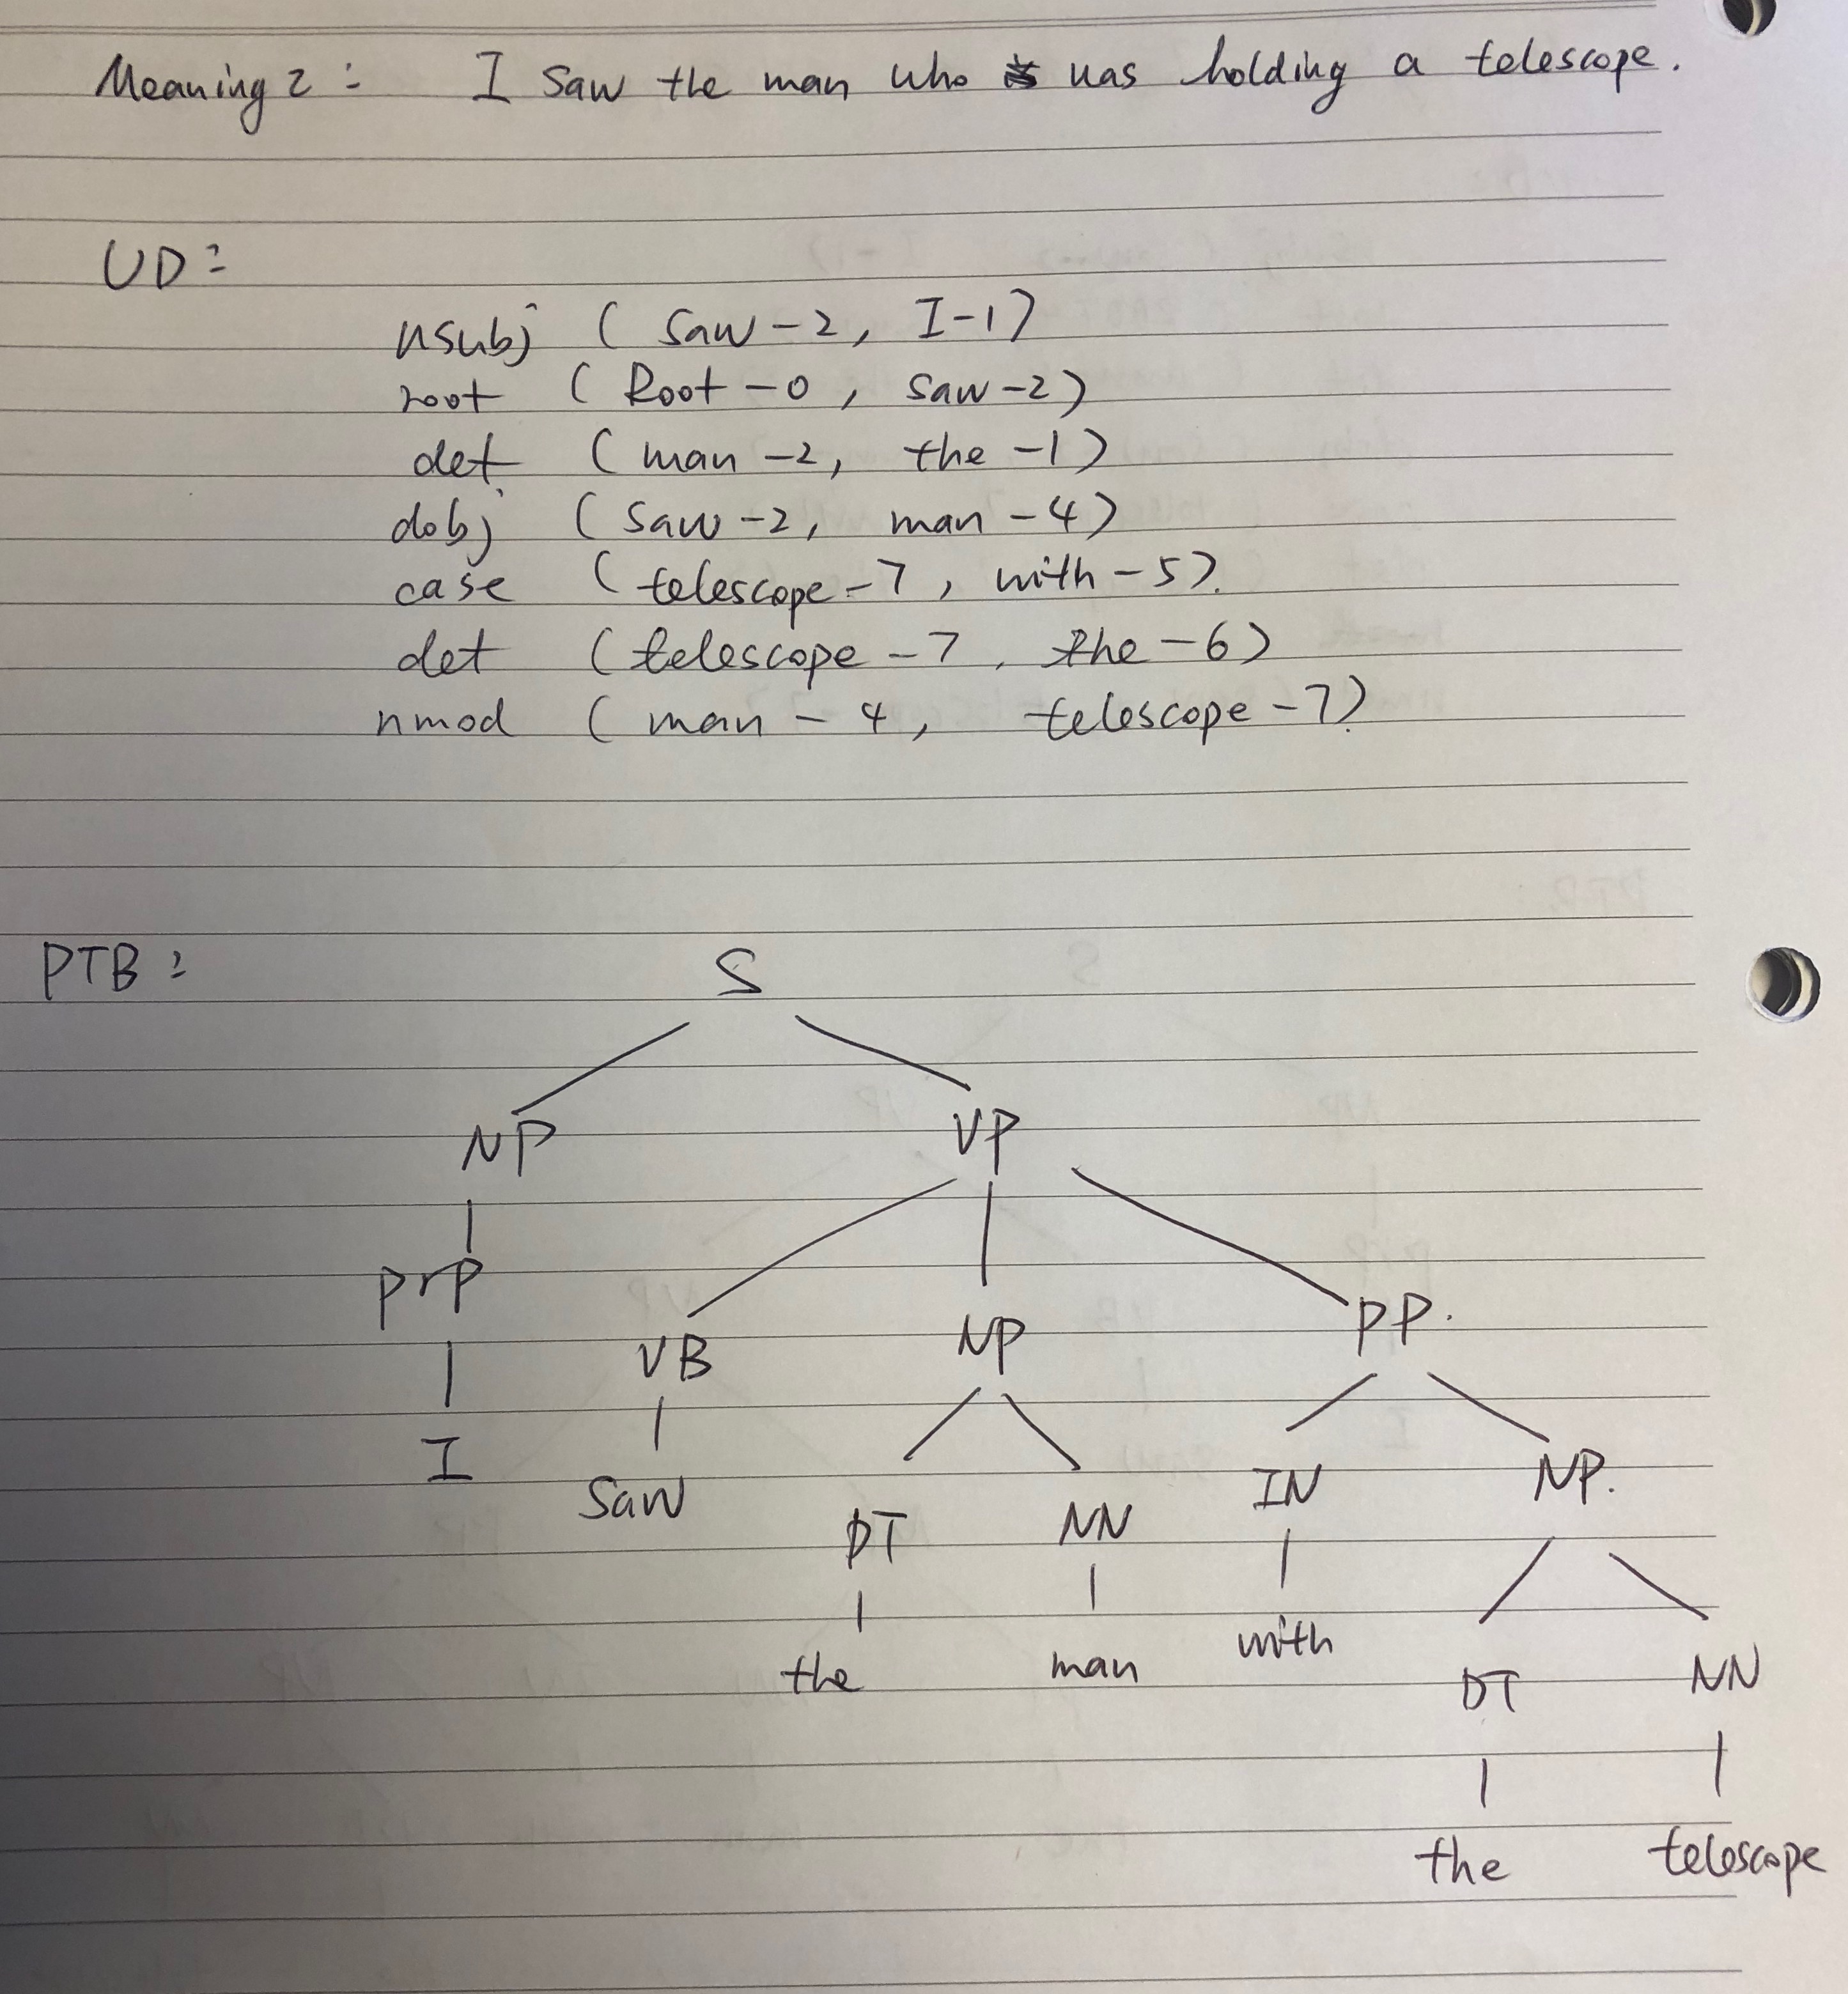 Meaning 2: I saw the man who was holding a telescope.
UD:
nsubj (saw-2, I-1)
root (Root-0, saw-2)
det (man-2, the-1)
dobj (saw-2, man-4)
case (telescope-7, with-5).
det (telescope-7, the-6)
nmod (man-4, telescope-7)
PTB: S
NP VP
PrP
VB NP PP.
I saw
DT NN IN NP.
the man with
DT NN
the telescope